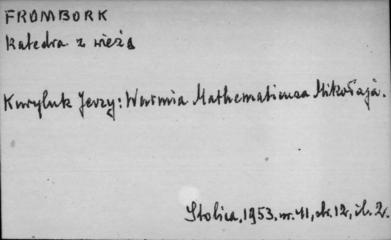 FROMBORK
Katedra z wieżą
Kuryluk Jerzy: Warmia Mathematicusa Mikołaja.
Stolica, 1953, nr. 41, str. 12, il. 2.